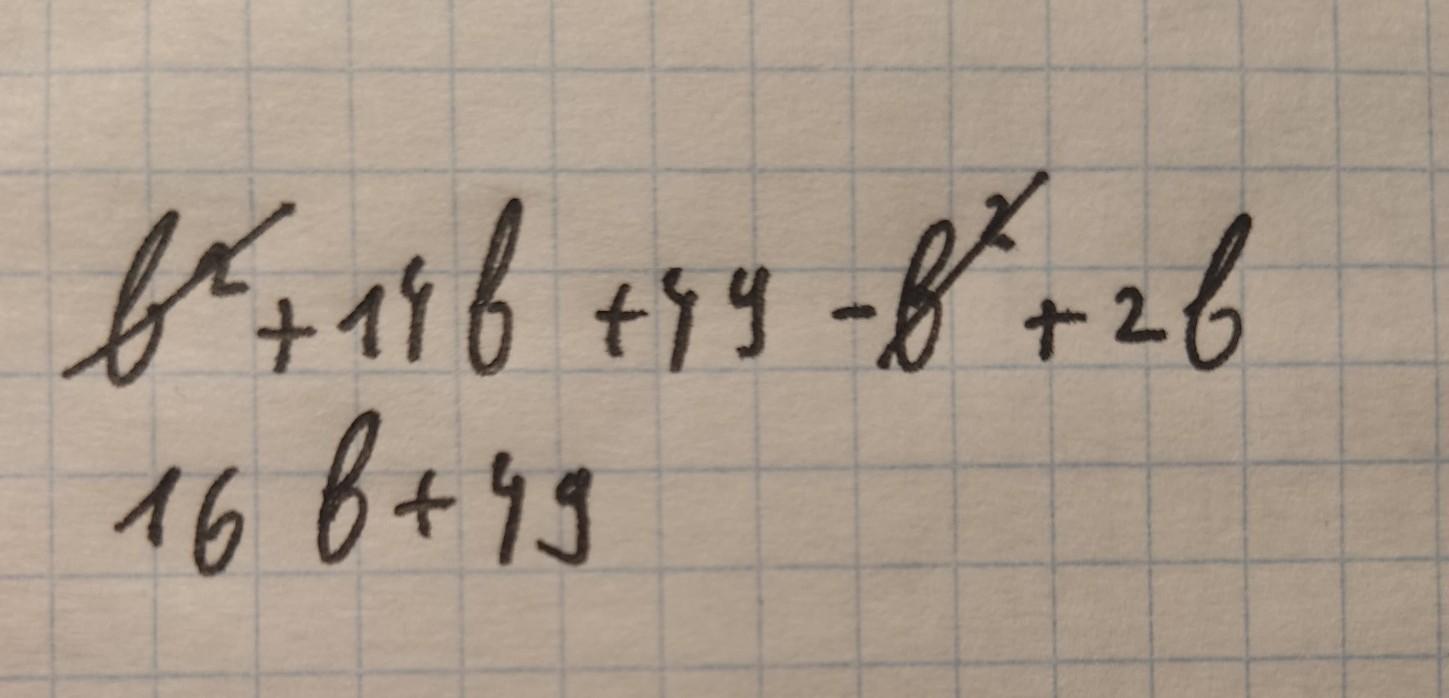 b² + 14b + 49 - b² + 2b
16b + 49